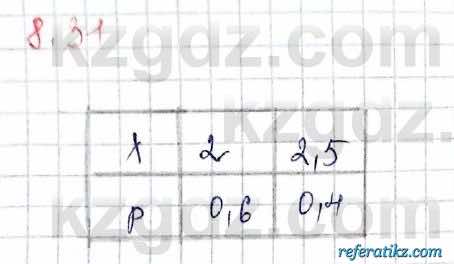 8.31
kzgdz.com
X 2 2,5
P 0,6 0,4
kzgdz.com
referatikz.com